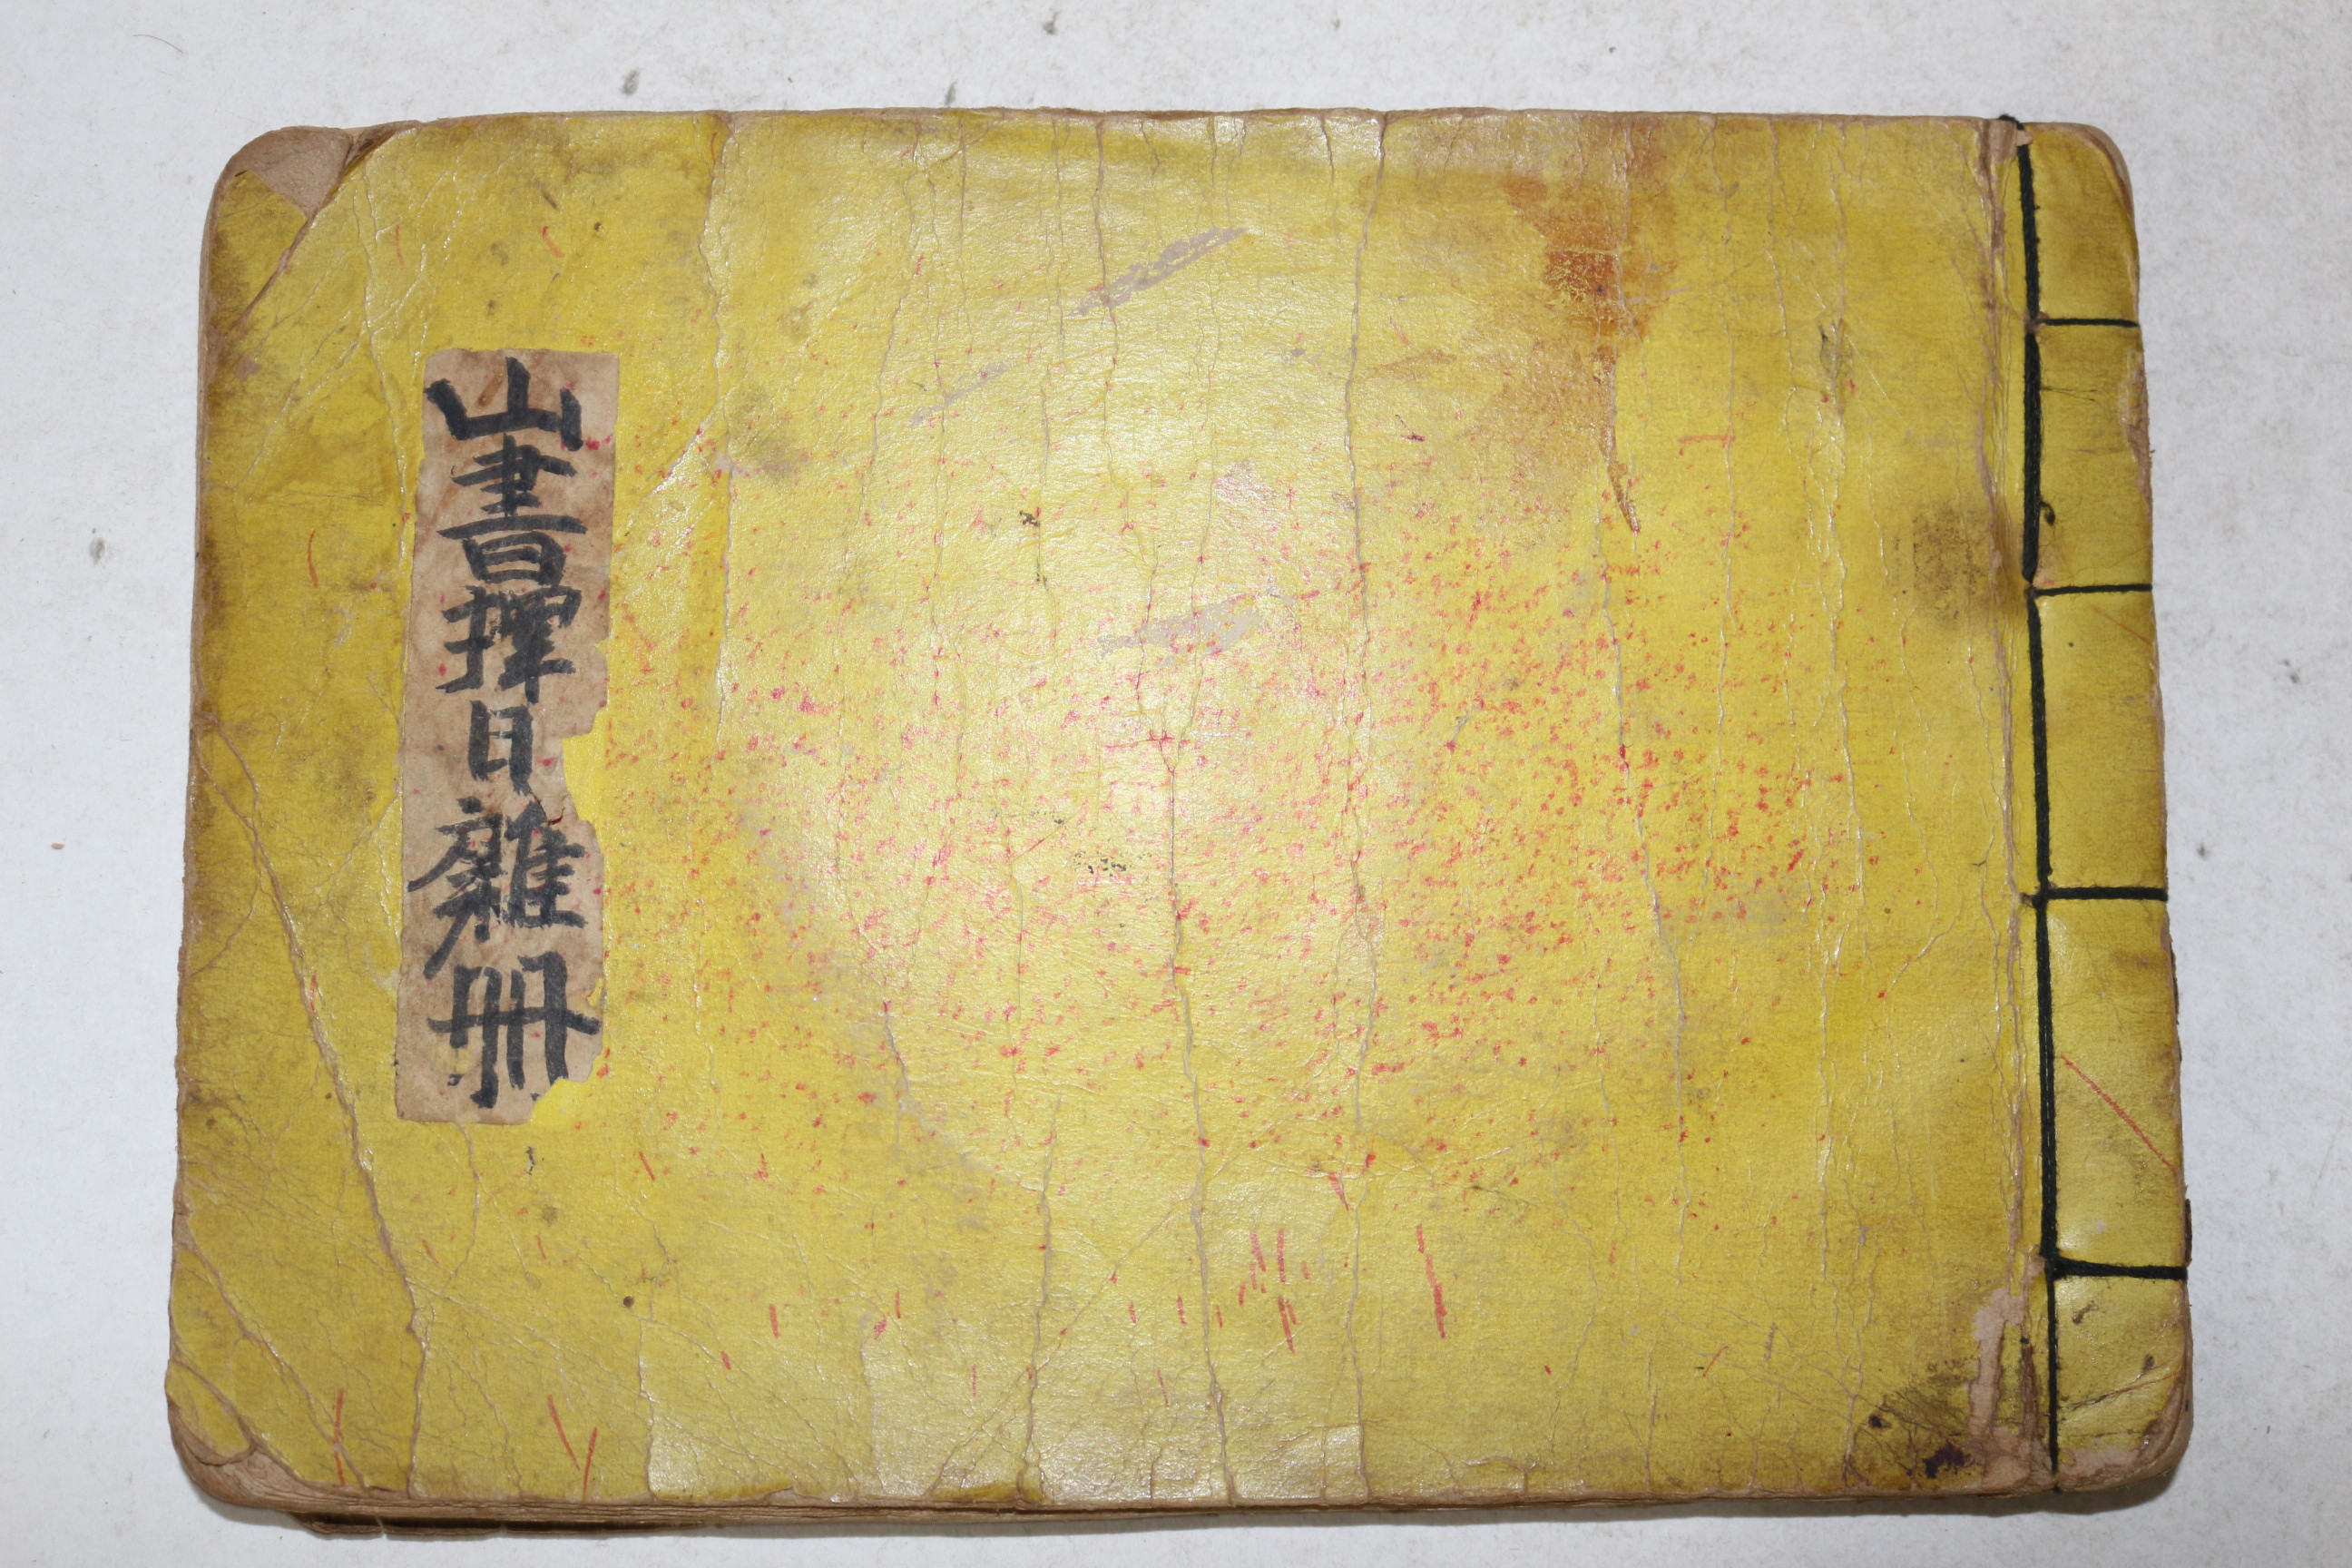 山書擇日雜冊